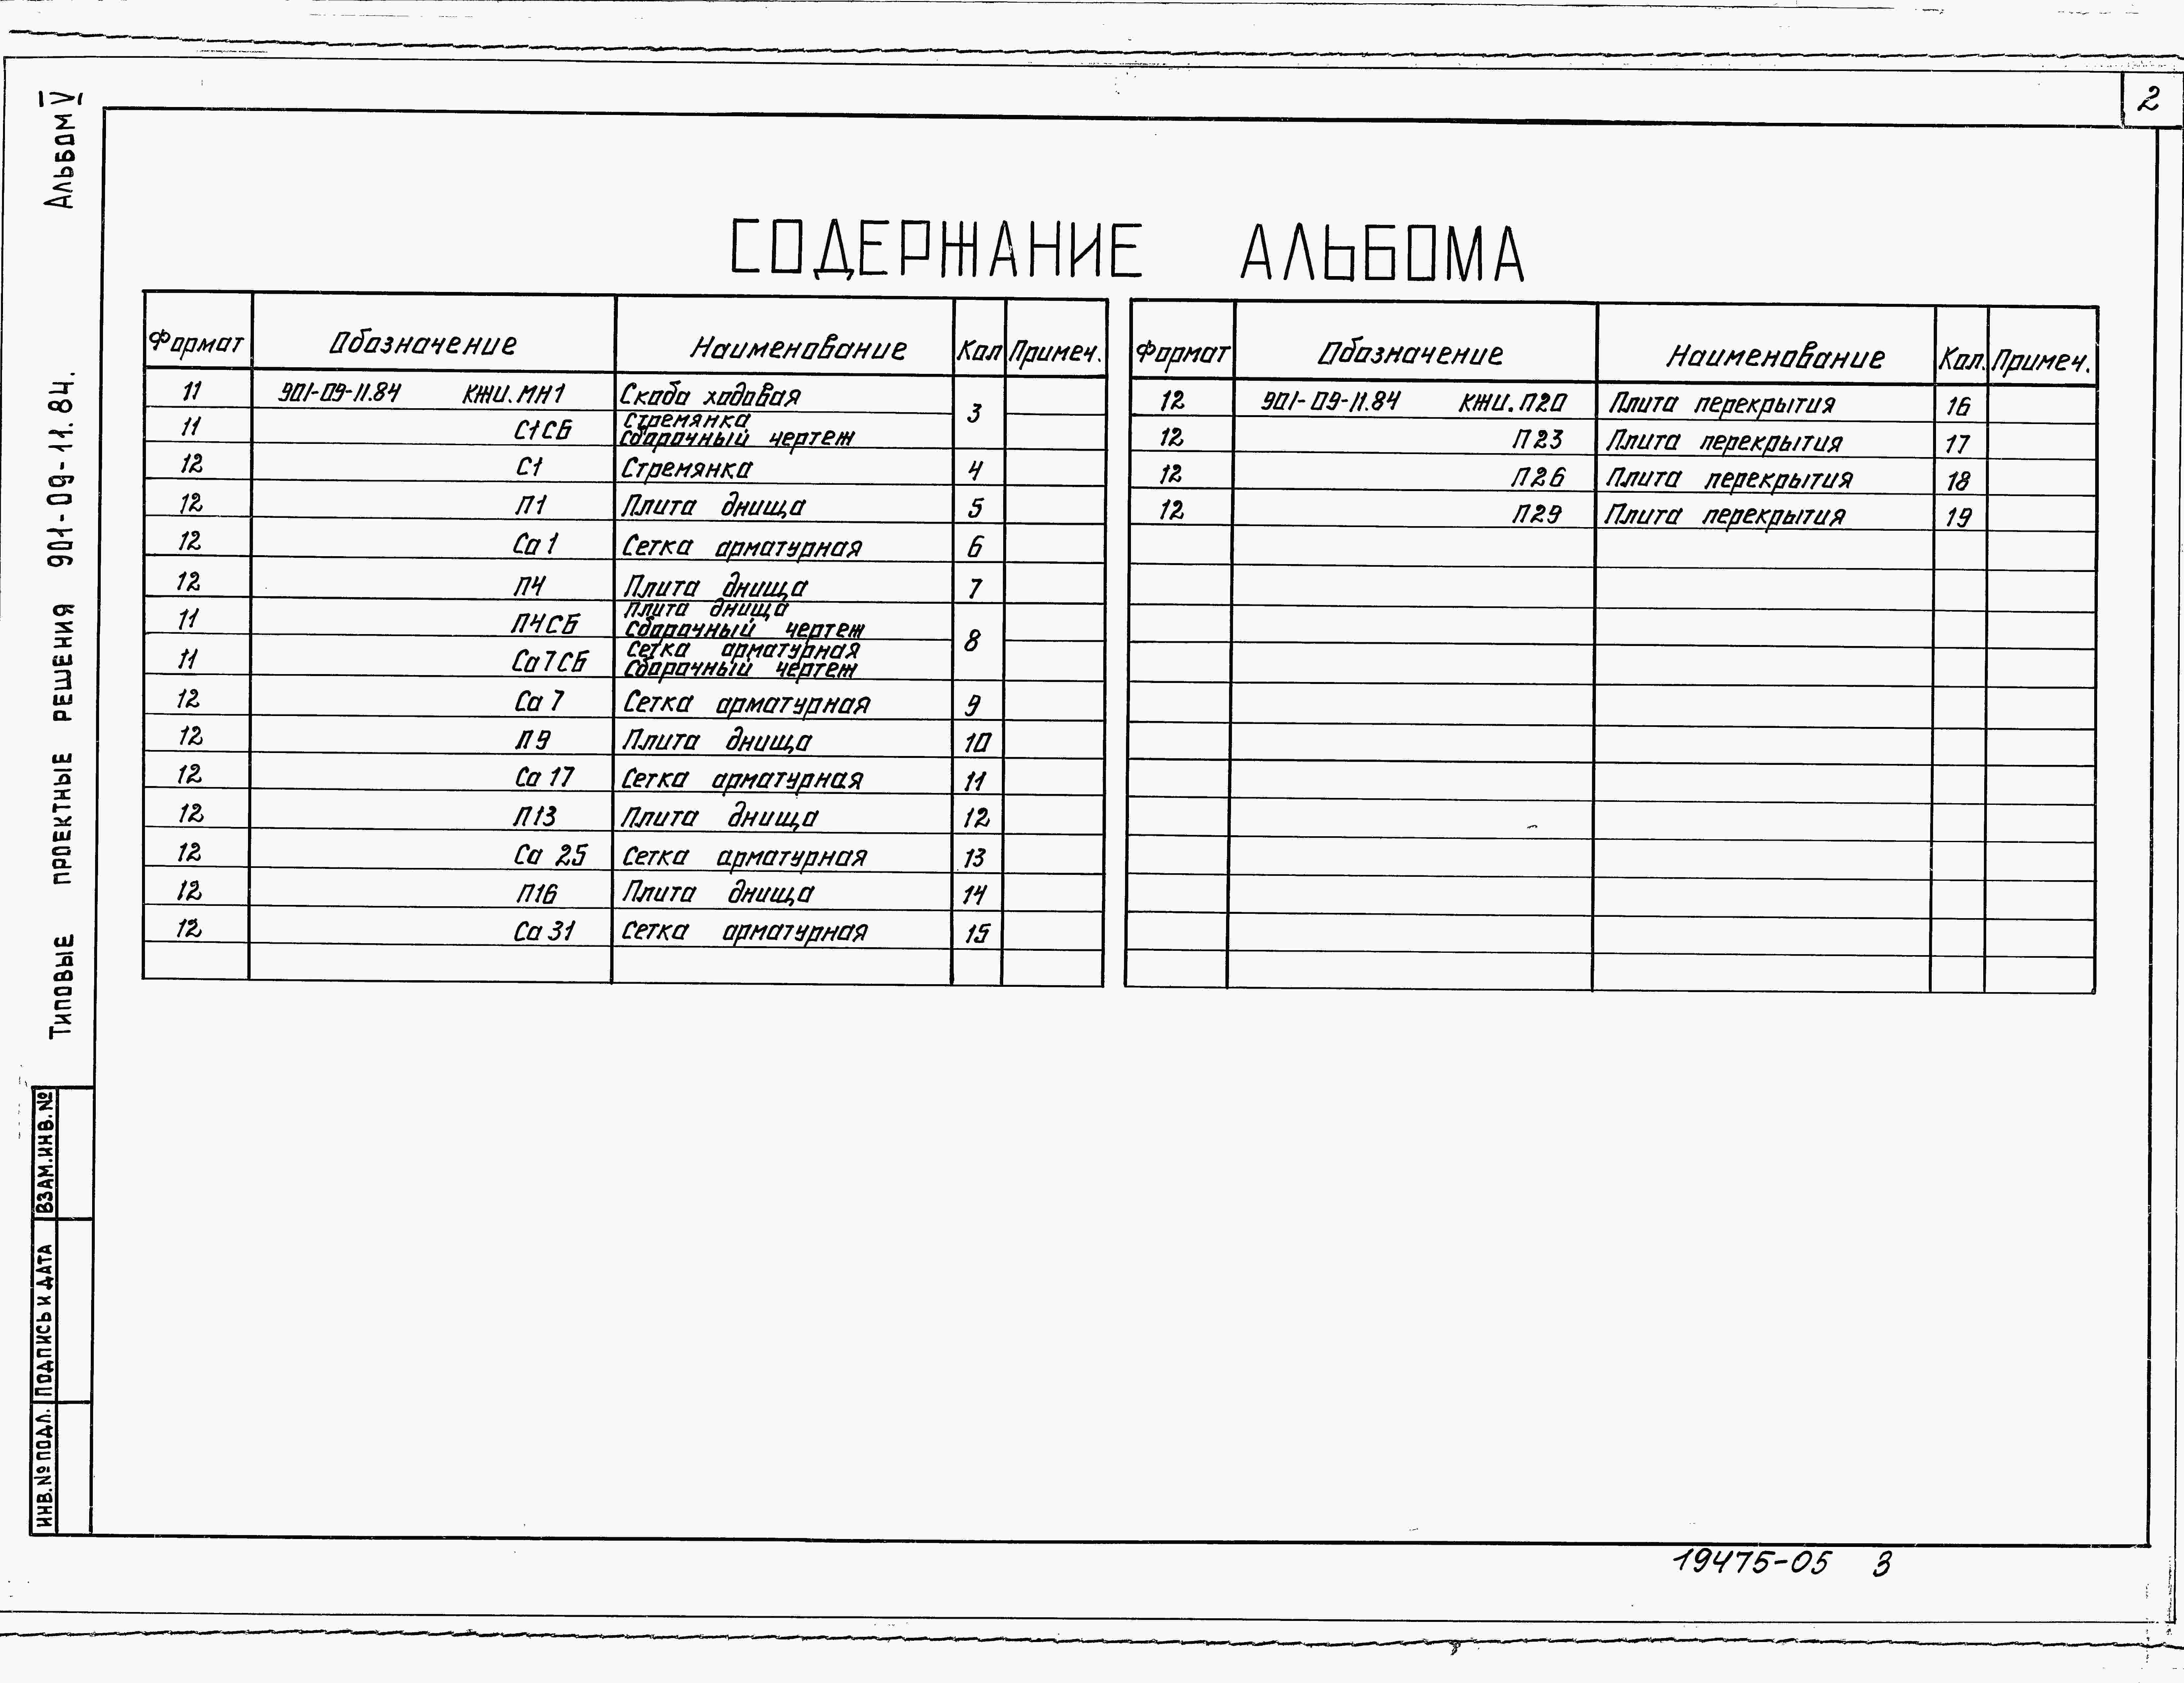 2
Альбом V
Типовые проектные решения 901-09-11.84.
СОДЕРЖАНИЕ АЛЬБОМА
Формат Обозначение Наименование Кол Примеч.
11 901-09-11.84 КЖИ.МН1 Скоба ходовая 3
11 С1СБ Стремянка
Сборочный чертеж
12 С1 Стремянка 4
12 П1 Плита днища 5
12 Са 1 Сетка арматурная 6
12 П4 Плита днища 7
11 П4СБ Плита днища
Сборочный чертеж 8
11 Са7СБ Сетка арматурная
Сборочный чертеж
12 Са 7 Сетка арматурная 9
12 П9 Плита днища 10
12 Са 17 Сетка арматурная 11
12 П13 Плита днища 12
12 Са 25 Сетка арматурная 13
12 П16 Плита днища 14
12 Са 31 Сетка арматурная 15
Формат Обозначение Наименование Кол. Примеч.
12 901-09-11.84 КЖИ.П20 Плита перекрытия 16
12 П23 Плита перекрытия 17
12 П26 Плита перекрытия 18
12 П29 Плита перекрытия 19
ВЗАМ.ИНВ.№
ПОДПИСЬ И ДАТА
ИНВ.№ПОДЛ.
19475-05 3